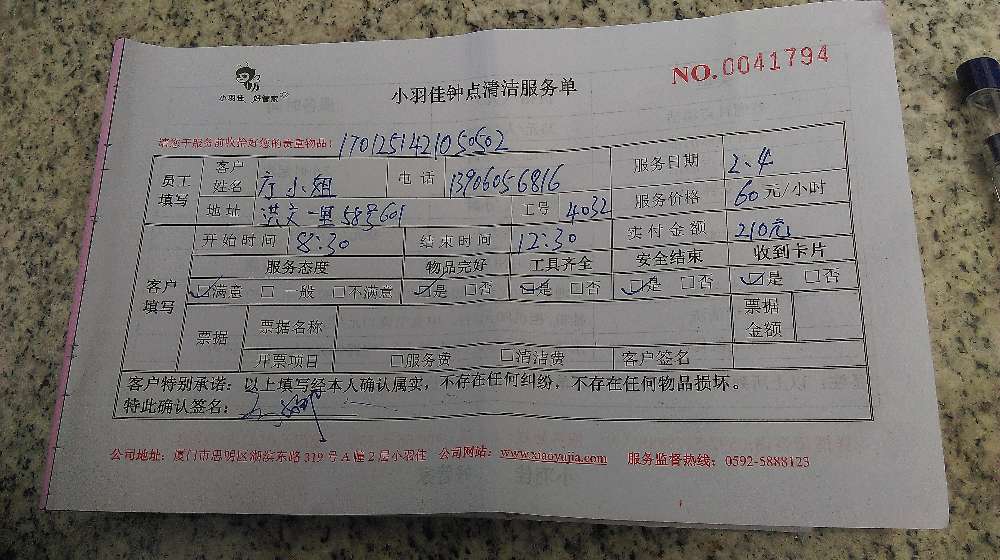 小羽佳 好管家
小羽佳钟点清洁服务单
NO.0041794
请您于服务前收拾好您的贵重物品!
1701251421050502
员工填写 客户姓名 小姐 电话 13906056816 服务日期 2.4
地址 洪文一里58号601 工号 4032 服务价格 60元/小时
开始时间 8:30 结束时间 12:30 实付金额 210元
客户填写 服务态度 物品完好 工具齐全 安全结束 收到卡片
☑满意 □一般 □不满意 ☑是 □否 ☑是 □否 ☑是 □否 ☑是 □否
票据 票据名称 票据金额
开票项目 □服务费 □清洁费 客户签名
客户特别承诺:以上填写经本人确认属实,不存在任何纠纷,不存在任何物品损坏。
特此确认签名:
公司地址:厦门市思明区湖滨东路319号A幢2层小羽佳 公司网站:www.xiaoyujia.com 服务监督热线:0592-5888123